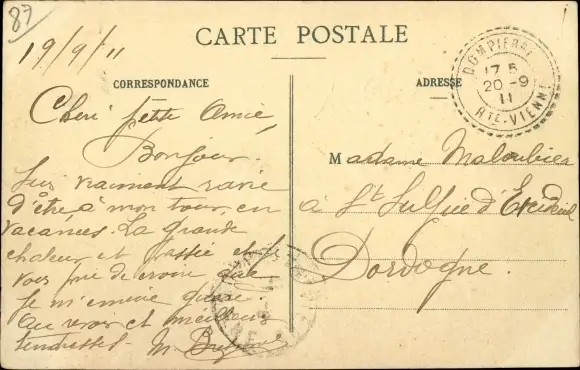 87
19/9/11
CARTE POSTALE
CORRESPONDANCE
ADRESSE
DOMPIERRE
17 5
20 -9
11
HTE-VIENNE
Cheri petite Amie,
Bonjour.
Suis vraiment ravie
d'être à mon tour, en
vacances. La grande
chaleur est passée et je
vous prie de croire que
je m'ennuie guère.
Au revoir et meilleures
tendresses. M.
Madame Maloubier
à St Sulpice d'Excideuil
Dordogne.